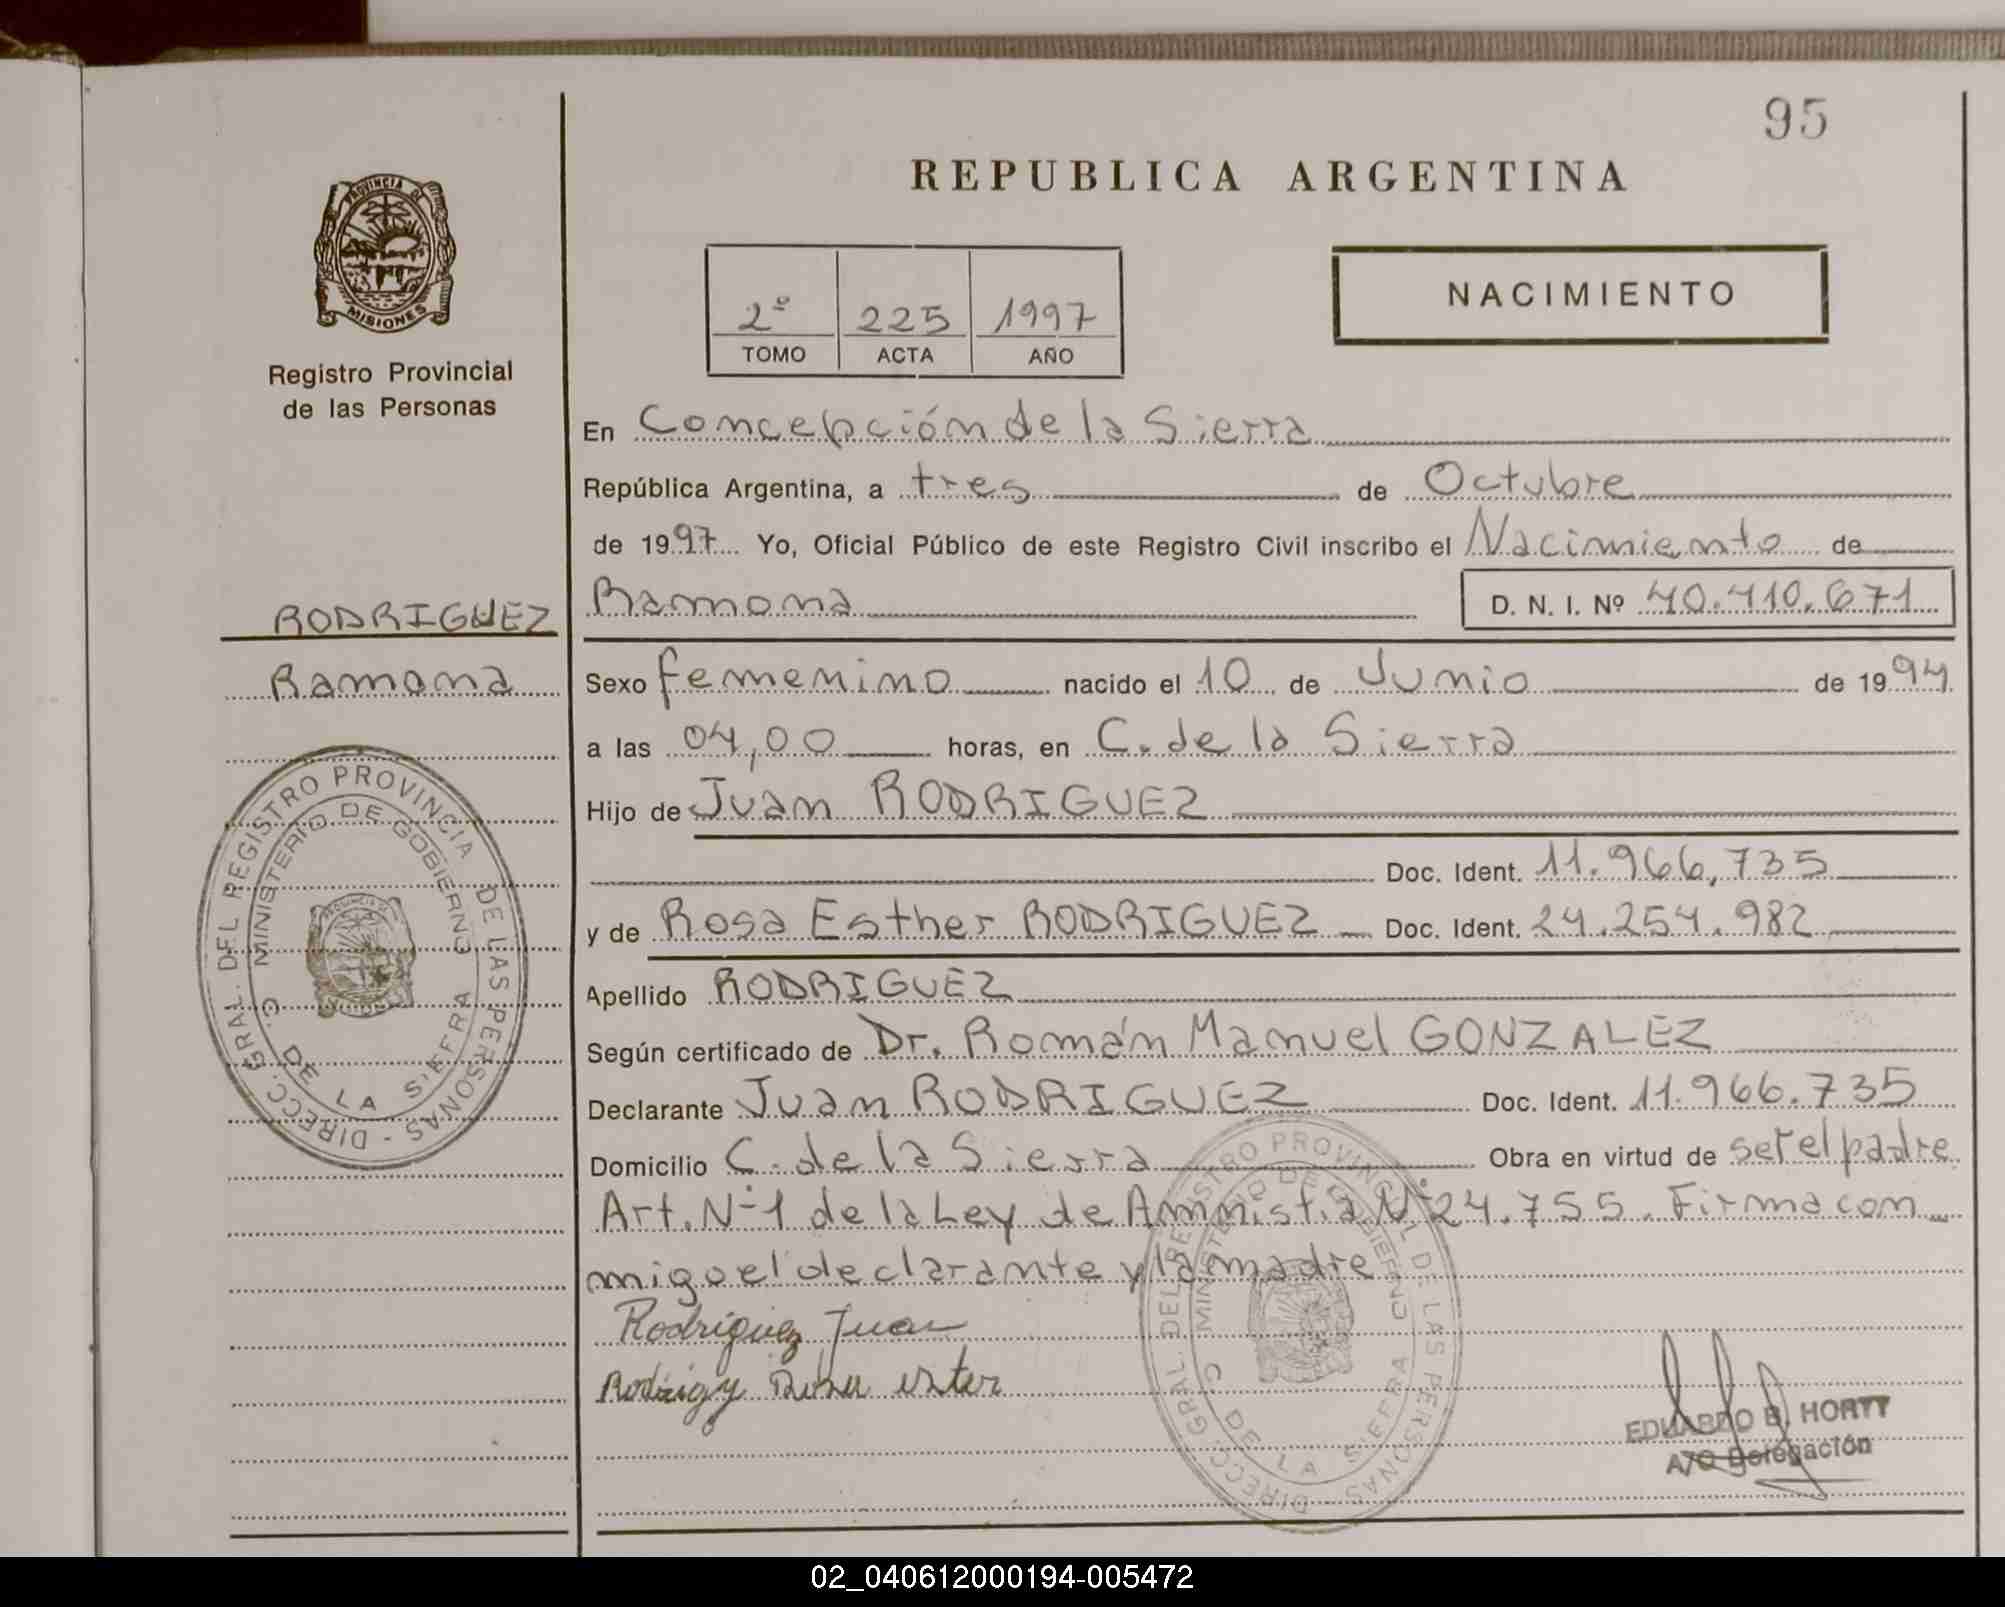 95
REPUBLICA ARGENTINA
PROVINCIA DE
MISIONES
Registro Provincial
de las Personas
2º 225 1997
TOMO ACTA AÑO
NACIMIENTO
En Concepción de la Sierra
República Argentina, a tres de Octubre
de 1997 Yo, Oficial Público de este Registro Civil inscribo el Nacimiento de
RODRIGUEZ
Ramona
Ramona D. N. I. Nº 40.410.671
Sexo femenino nacido el 10 de Junio de 1994
a las 04,00 horas, en C. de la Sierra
Hijo de Juan RODRIGUEZ
Doc. Ident. 11.966,735
y de Rosa Esther RODRIGUEZ Doc. Ident. 24.254.982
Apellido RODRIGUEZ
Según certificado de Dr. Román Manuel GONZALEZ
Declarante Juan RODRIGUEZ Doc. Ident. 11.966.735
Domicilio C. de la Sierra Obra en virtud de ser el padre
Art. Nº 1 de la Ley de Amnistia Nº 24.755. Firma con
migo el declarante y la madre
Rodríguez Juan
Rosa ester
EDUARDO B. HORTT
A/C Delegación
DIRECC. GRAL. DEL REGISTRO PROVINCIAL DE LAS PERSONAS -
MINISTERIO DE GOBIERNO
C. DE LA SIERRA
DIRECC. GRAL. DEL REGISTRO PROVINCIAL DE LAS PERSONAS -
MINISTERIO DE GOBIERNO
C. DE LA SIERRA
02_040612000194-005472